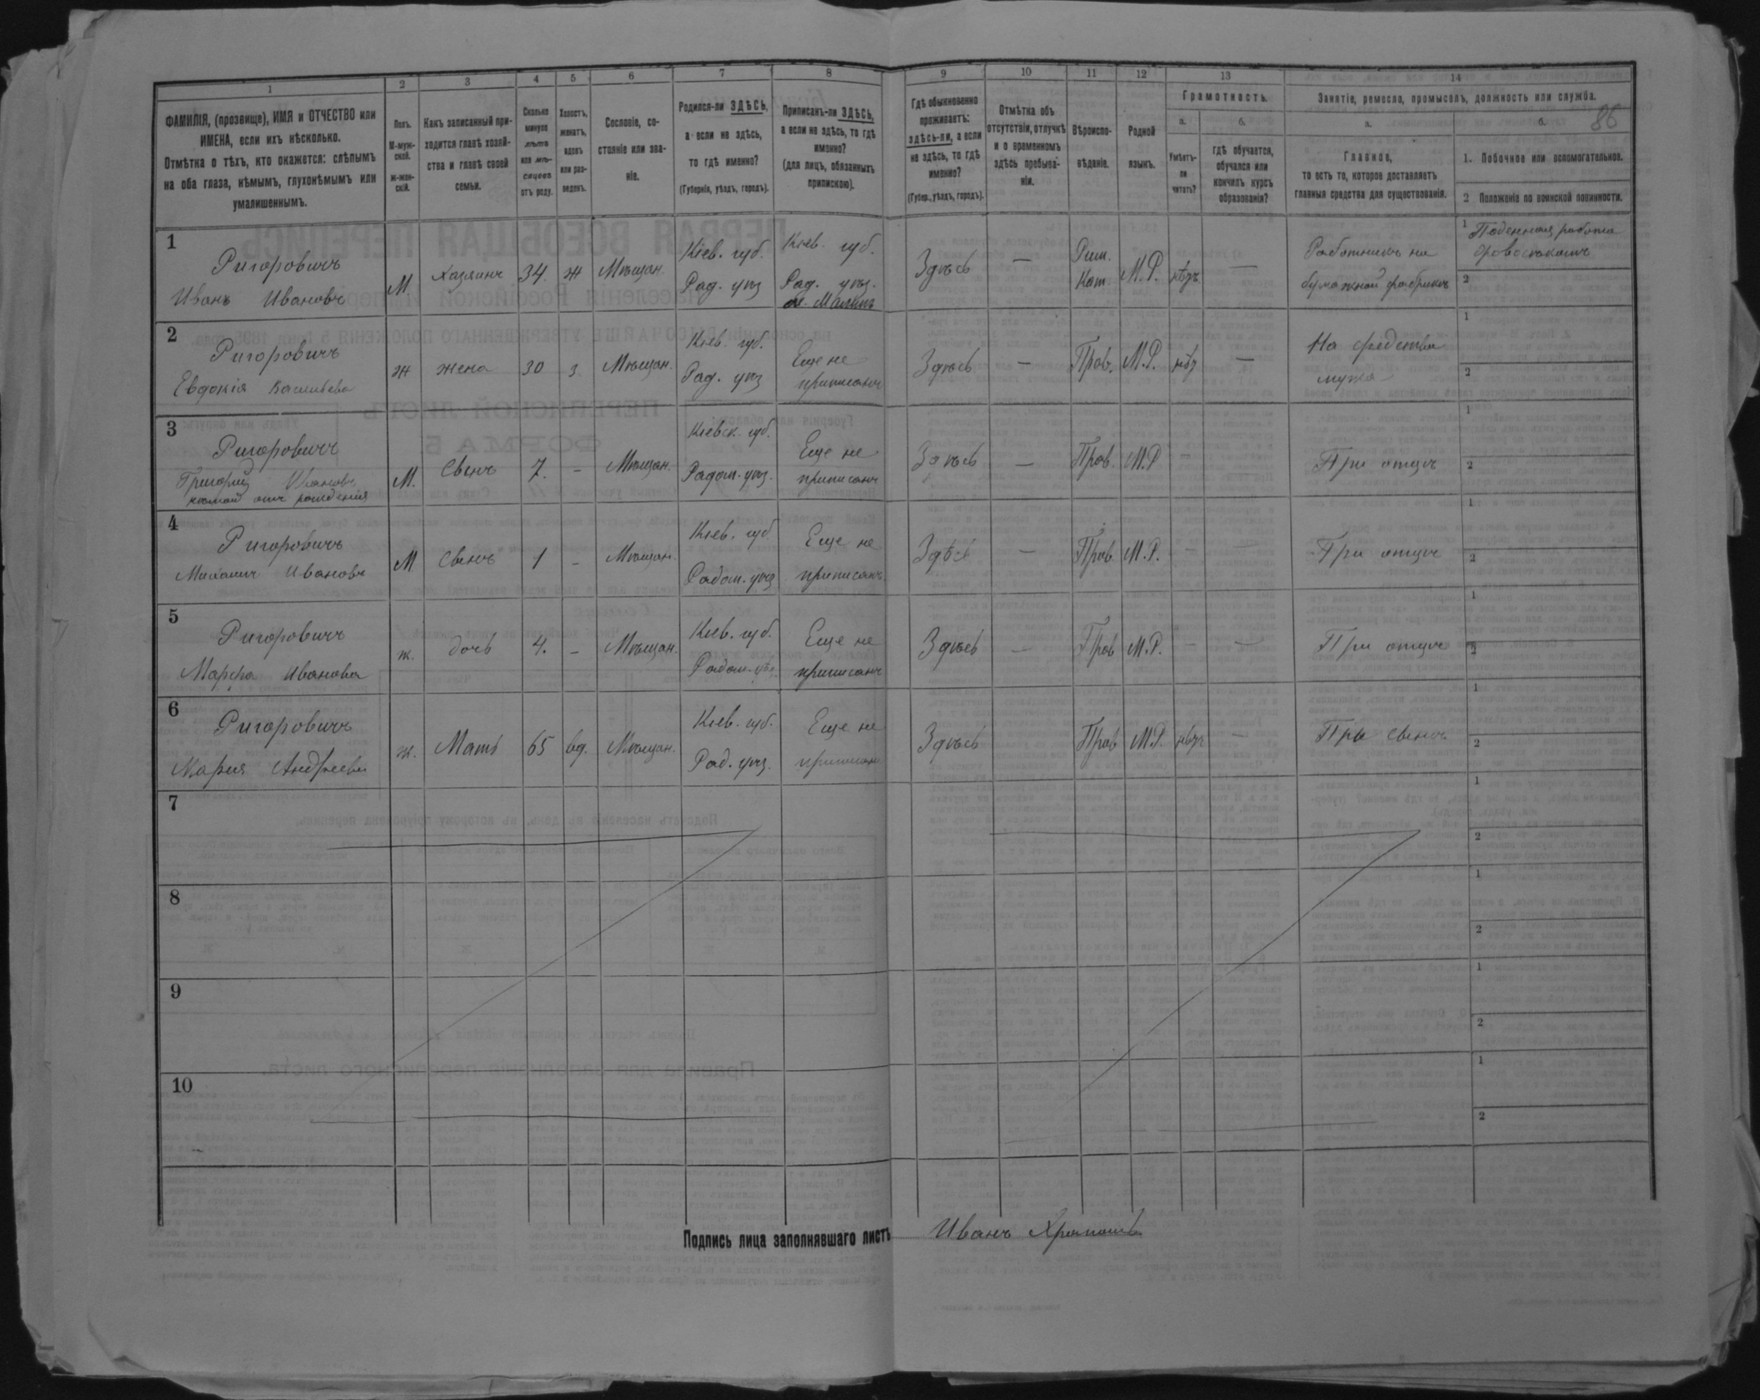 1 2 3 4 5 6 7 8 9 10 11 12 13 14
86
ФАМИЛІЯ, (прозвище), ИМЯ и ОТЧЕСТВО или
ИМЕНА, если ихъ нѣсколько.
Отмѣтка о тѣхъ, кто окажется: слѣпымъ
на оба глаза, нѣмымъ, глухонѣмымъ или
умалишеннымъ.
Полъ.
М-муж-
ской.
Ж-жен-
скій.
Какъ записанный при-
ходится главѣ хозяй-
ства и главѣ своей
семьи.
Сколько
минуло
лѣтъ
или мѣ-
сяцевъ
отъ роду.
Холостъ,
женатъ,
вдовъ
или раз-
веденъ.
Сословіе, со-
стояніе или зва-
ніе.
Родился-ли ЗДѢСЬ,
а если не здѣсь,
то гдѣ именно?
(Губернія, уѣздъ, городъ).
Приписанъ-ли ЗДѢСЬ,
а если не здѣсь, то гдѣ
именно?
(для лицъ, обязанныхъ
припискою).
Гдѣ обыкновенно
проживаетъ:
здѣсь-ли, а если
не здѣсь, то гдѣ
именно?
(Губер., уѣздъ, городъ).
Отмѣтка объ
отсутствіи, отлучкѣ
и о временномъ
здѣсь пребыва-
ніи.
Вѣроиспо-
вѣданіе.
Родной
языкъ.
Грамотность.
а.
Умѣетъ-
ли
читать?
б.
гдѣ обучается,
обучался или
кончилъ курсъ
образованія?
Занятіе, ремесло, промыселъ, должность или служба.
а.
Главное,
то есть то, которое доставляетъ
главныя средства для существованія.
б.
1. Побочное или вспомогательное.
2 Положеніе по воинской повинности.
1
Ригоровичъ
Иванъ Ивановъ
М. Хозяинъ 34 ж Мѣщан.
Кіев. губ.
Рад. уѣз
Кіев. губ.
Рад. уѣз.
м. Малинъ
Здѣсь —
Рим.
Кат.
М.Р. нѣтъ —
Работникъ на
бумажной фабрикѣ
1 Поденная работа
дровосѣкомъ
2
2
Ригоровичъ
Евдокія Васильева
ж жена 30 з Мѣщан.
Кіев. губ.
Рад. уѣз
Еще не
приписанъ
Здѣсь — Прав. М.Р. нѣт —
На средства
мужа
1
2
3
Ригоровичъ
Григорій Иванов
нѣмой отъ рожденія
М. Сынъ 7. – Мѣщан.
Кіевск. губ.
Радом. уѣз.
Еще не
приписанъ
Здѣсь — Прав. М.Р
При отцѣ
1
2
4
Ригоровичъ
Ивановъ
М Сынъ 1 – Мѣщан.
Кіев. губ
Радом. уѣз
Еще не
приписанъ.
Здѣсь — Прав М.Р. – —
При отцѣ
1
2
5
Ригоровичъ
Марфа Иванова
ж. дочь 4. – Мѣщан.
Кіев. губ.
Радом. уѣз.
Еще не
приписанъ
Здѣсь — Прав М.Р. – —
При отцѣ
1
2
6
Ригоровичъ
Мария Андреева
ж. Мать 65 вд. Мѣщан.
Кіев. губ.
Рад. уѣз.
Еще не
приписан
Здѣсь Прав М.Р. нѣтъ —
При сынѣ
1
2
7
1
2
8
1
2
9
1
2
10
1
2
Подпись лица заполнявшаго листъ Иванъ